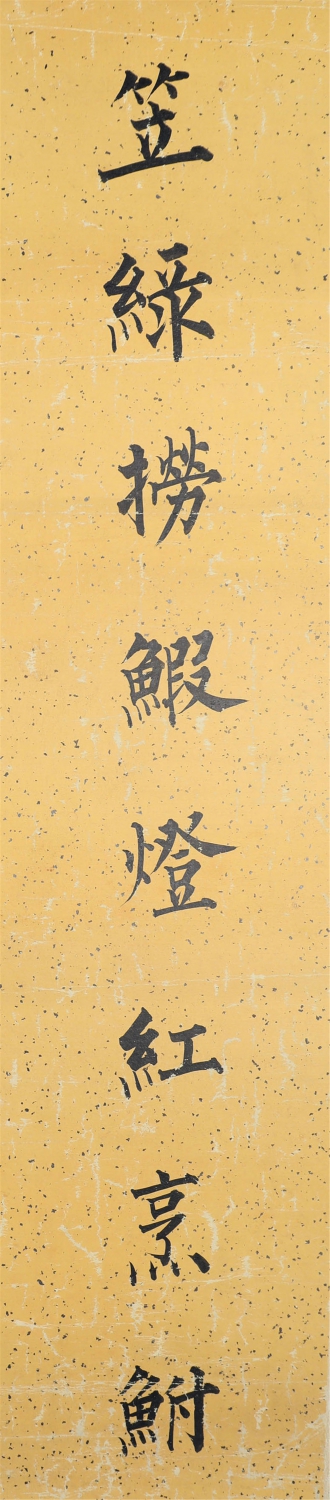 笠綠撈鰕燈紅烹鮒